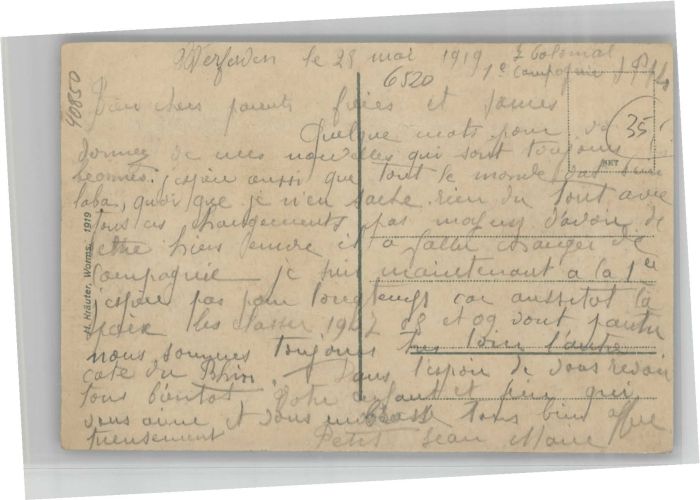 le 28 mai 1919 7 Colonial
1e Compagnie
6520
40850
Bien chers parents frères et
Quelque mots pour
35
donnez de mes nouvelles qui sont toujours
NKT
bonnes. j'espère aussi que tout le monde
laba, quoi que je n'en sache rien du tout avec
tous ces changements pas moyen d'avoir de
lettre hier encore il a fallu changer de
Compagnie je suis maintenant a la 1ere
j'espère pas pour longtemps car aussitot la
paix les classes 08 et 09 vont partir
nous sommes toujours très loin l'autre
coté du Rhin. Dans l'espoir de vous revoir
tous bientot Votre enfant et qui
vous aime et vous embrasse tous bien affec
tueusement Petit Jean Marie
H. Kräuter, Worms. 1919